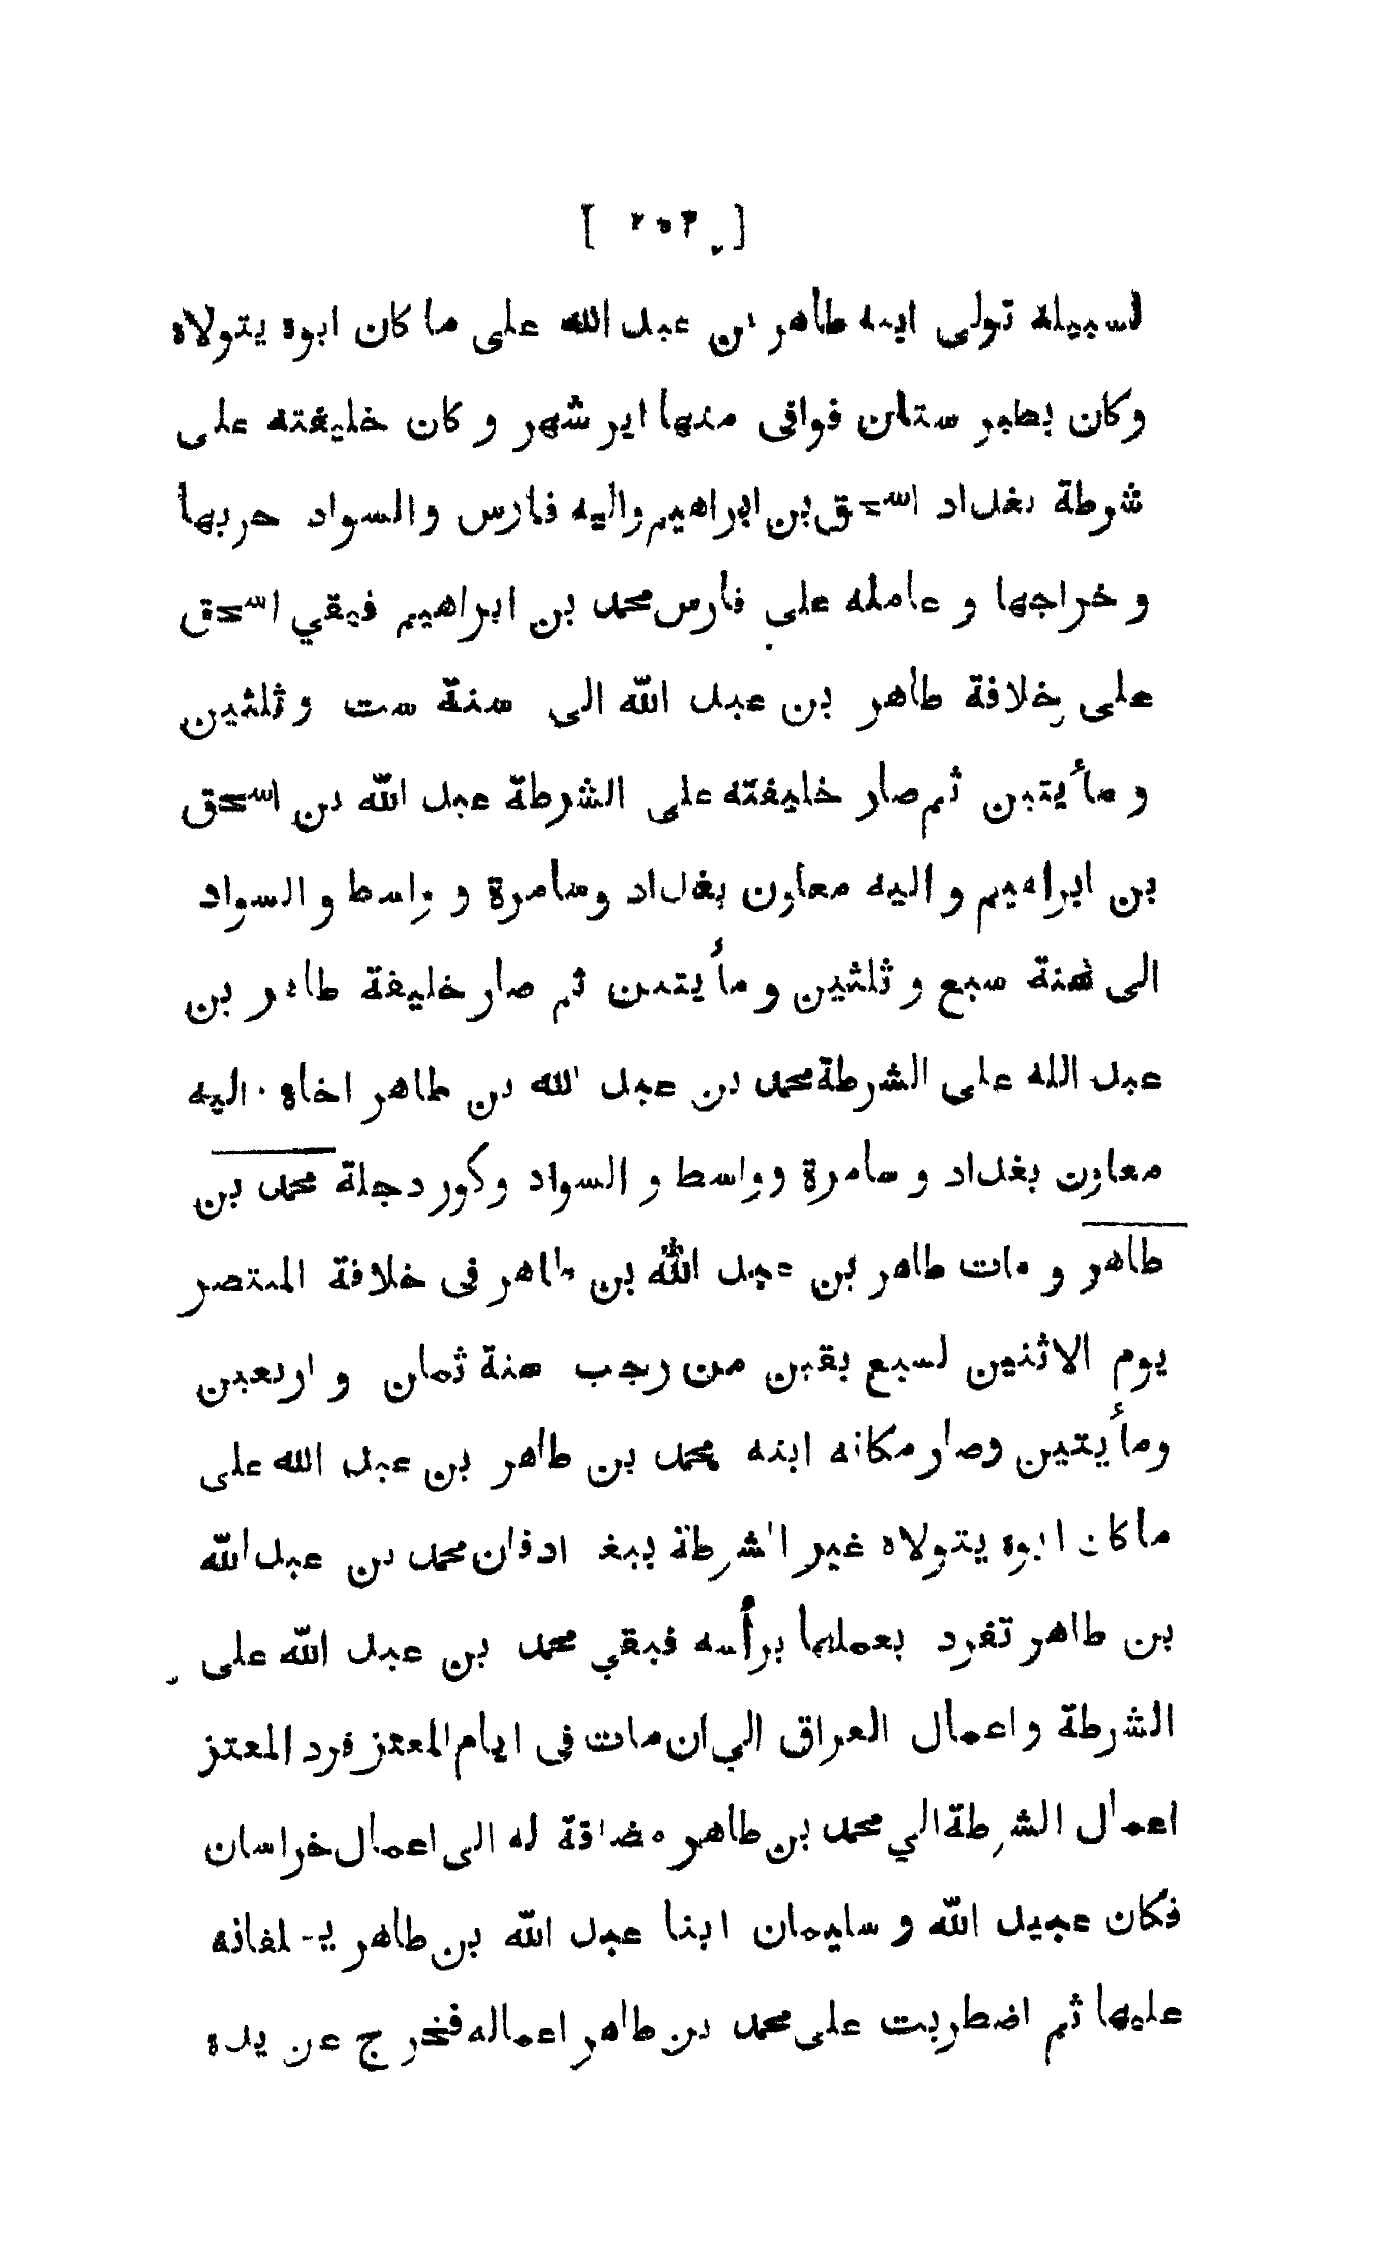 [ ٢٥٣ ]
لسبيلة تولى ابنه طاهر بن عبد الله على ما كان ابوه يتولاه
وكان بطبر ستان فوافى منها ابر شهر و كان خليفته على
شرطة بغداد اسحق بن ابراهيم واليه فارس والسواد حربها
و خراجها و عامله على فارس محمد بن ابراهيم فبقي اسحق
على خلافة طاهر بن عبد الله الى سنة ست و ثلثين
و مأيتين ثم صار خليفته على الشرطة عبد الله بن اسحق
بن ابراهيم و اليه معاون بغداد وسامرة و واسط و السواد
الى سنة سبع و ثلثين و مأيتين ثم صار خليفة طاهر بن
عبد الله على الشرطة محمد بن عبد الله بن طاهر اخاه اليه
معاون بغداد و سامرة وواسط و السواد وكور دجلة محمد بن
طاهر و مات طاهر بن عبد الله بن طاهر فى خلافة المنتصر
يوم الاثنين لسبع بقين من رجب سنة ثمان و اربعين
ومأيتين وصار مكانه ابنه محمد بن طاهر بن عبد الله على
ماكان ابوه يتولاه غير الشرطة ببغ ادفان محمد بن عبد الله
بن طاهر تفرد بعملها برأسه فبقي محمد بن عبد الله على
الشرطة و اعمال العراق الي ان مات في ايام المعتز فرد المعتز
اعمال الشرطة الي محمد بن طاهر مضافة له الى اعمال خراسان
فكان عبيد الله و سليمان ابنا عبد الله بن طاهر يخلفانه
عليها ثم اضطربت على محمد بن طاهر اعماله فخرج عن يده